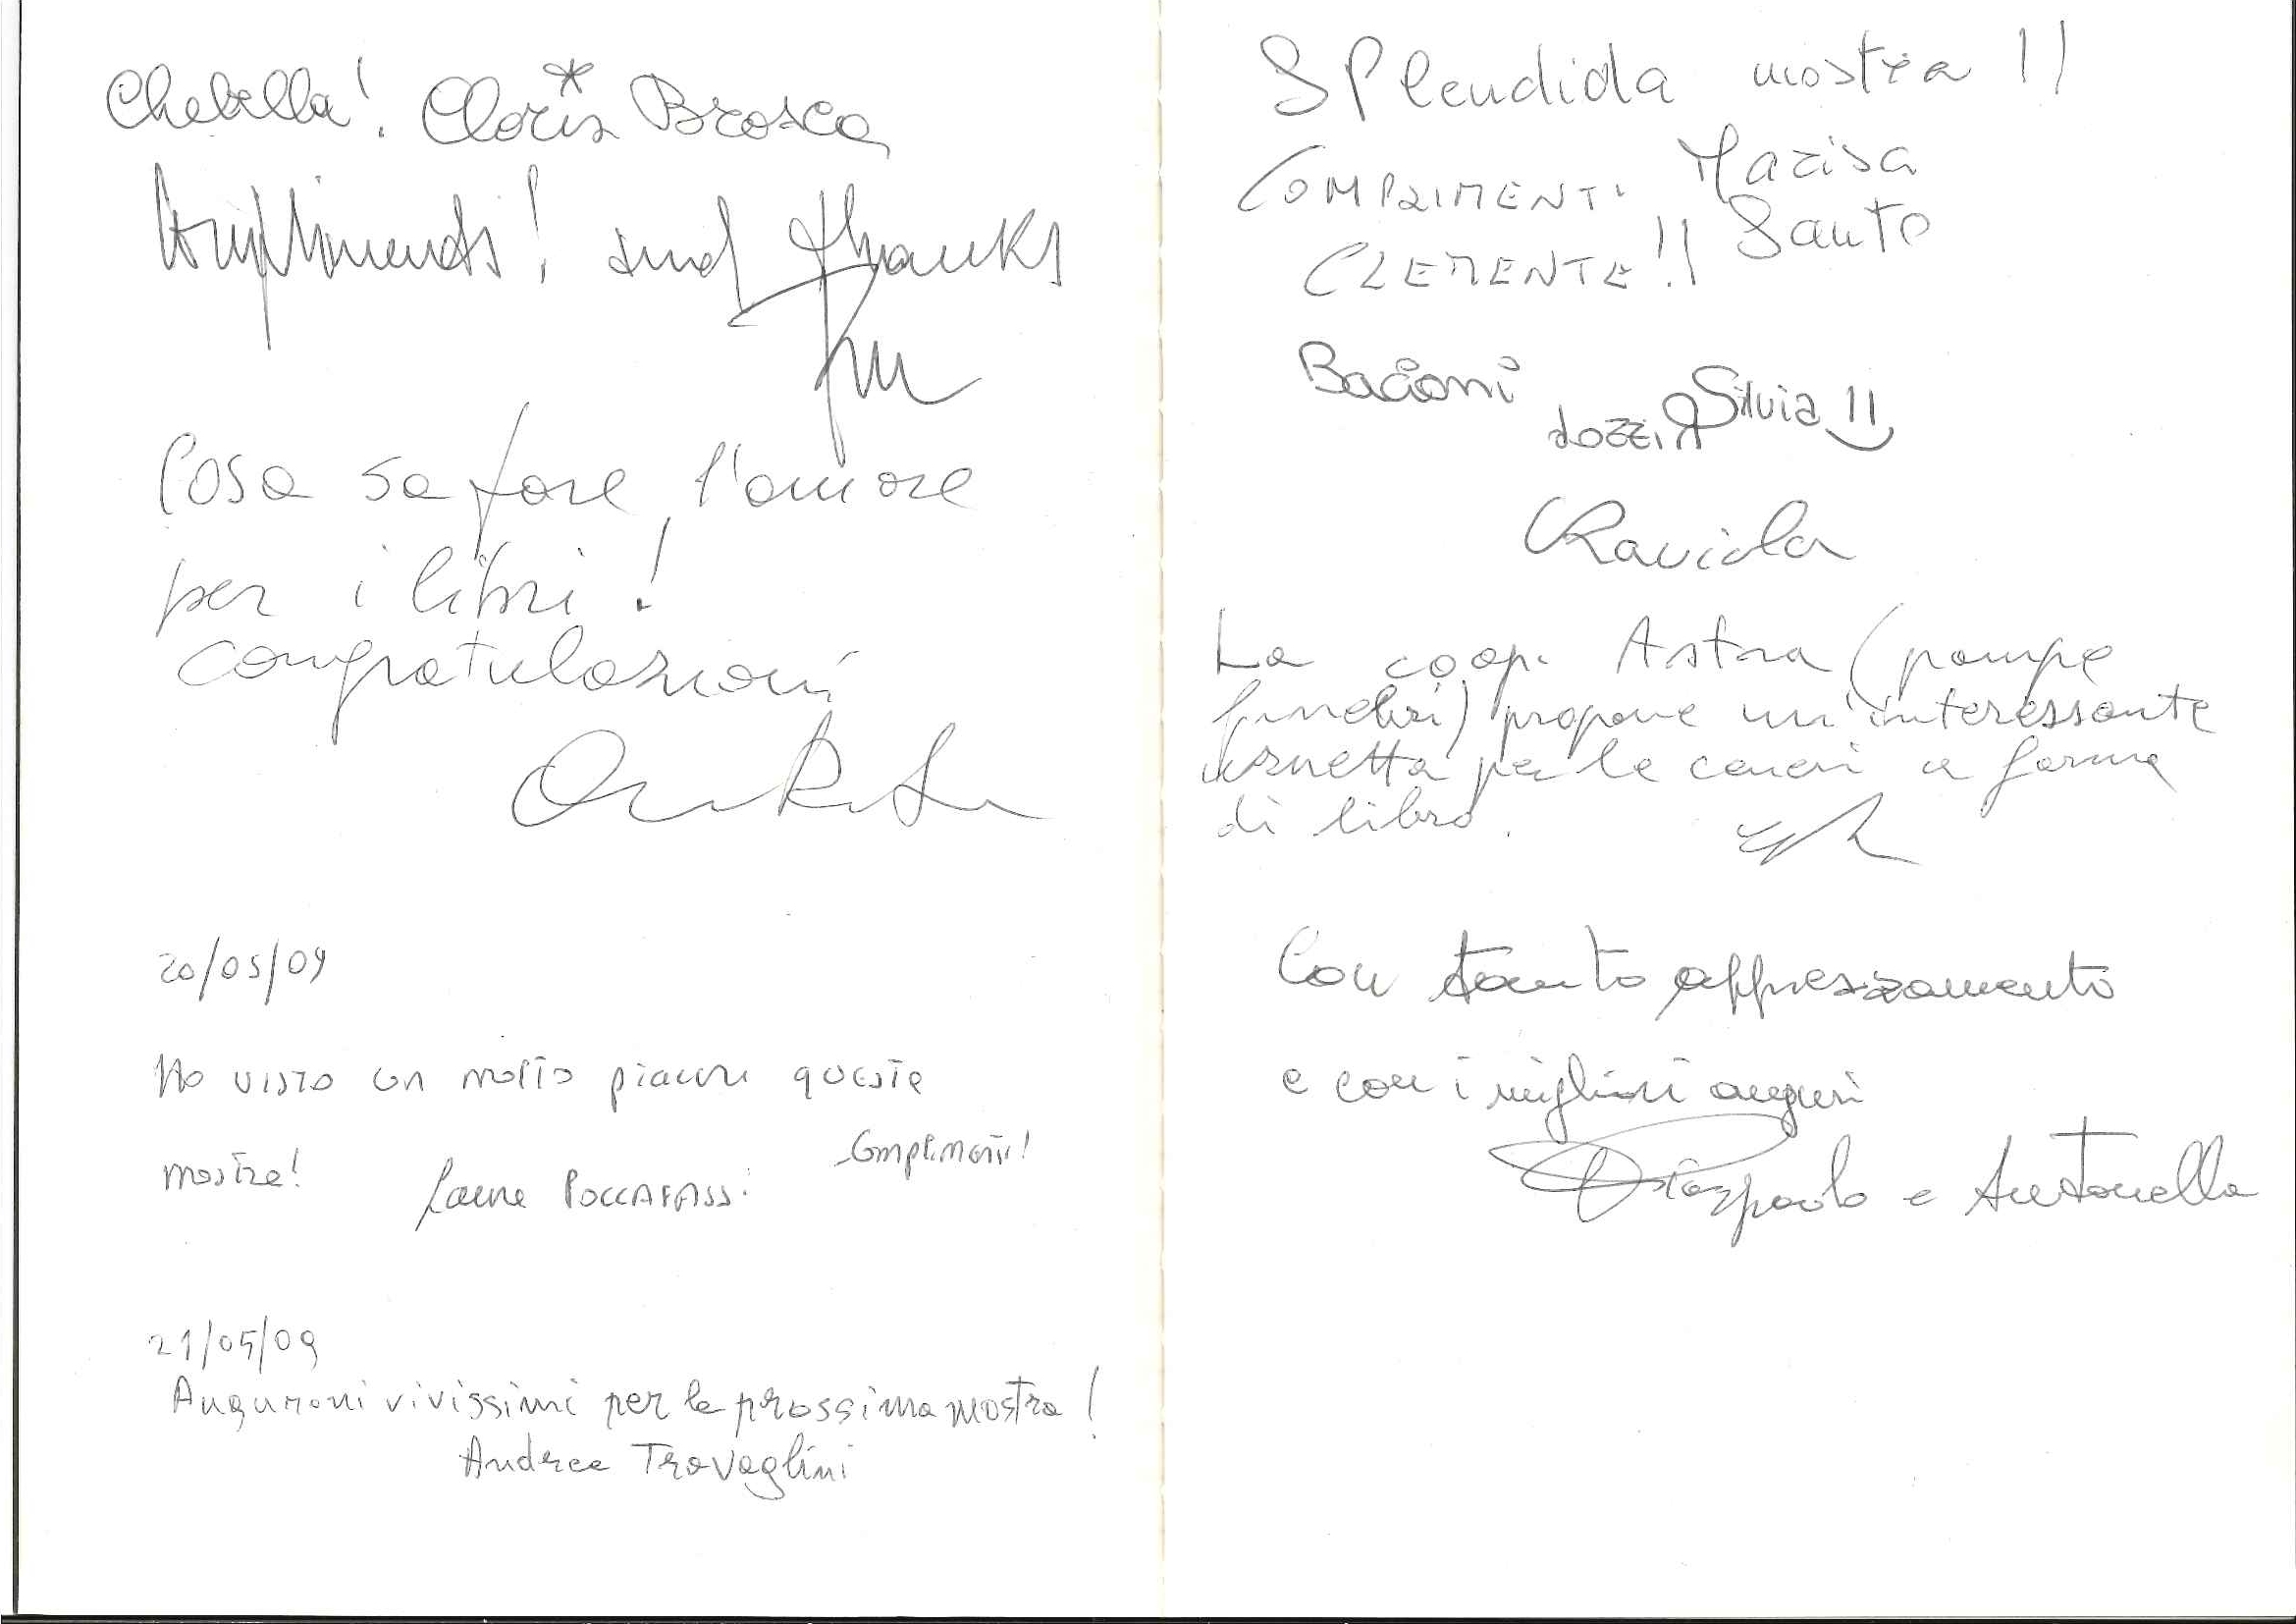 Che bella! Cloris Brosca
Compliments! and thanks
Cosa sa fare l'amore
per i libri!
congratulazioni
20/05/09
Ho visto con molto piacere queste
mostre! Complimenti!
21/05/09
Auguroni vivissimi per la prossima mostra!
Andrea Travaglini
Splendida mostra!!
COMPLIMENTI Marisa
CLEMENTE!! Santo
Bacioni
Silvia!!
Raviola
La coop. Astra (pompe
funebri) propone un'interessante
urnetta per le ceneri a forma
di libro.
Con tanto apprezzamento
e con i migliori auguri
Pierpaolo e Antonella